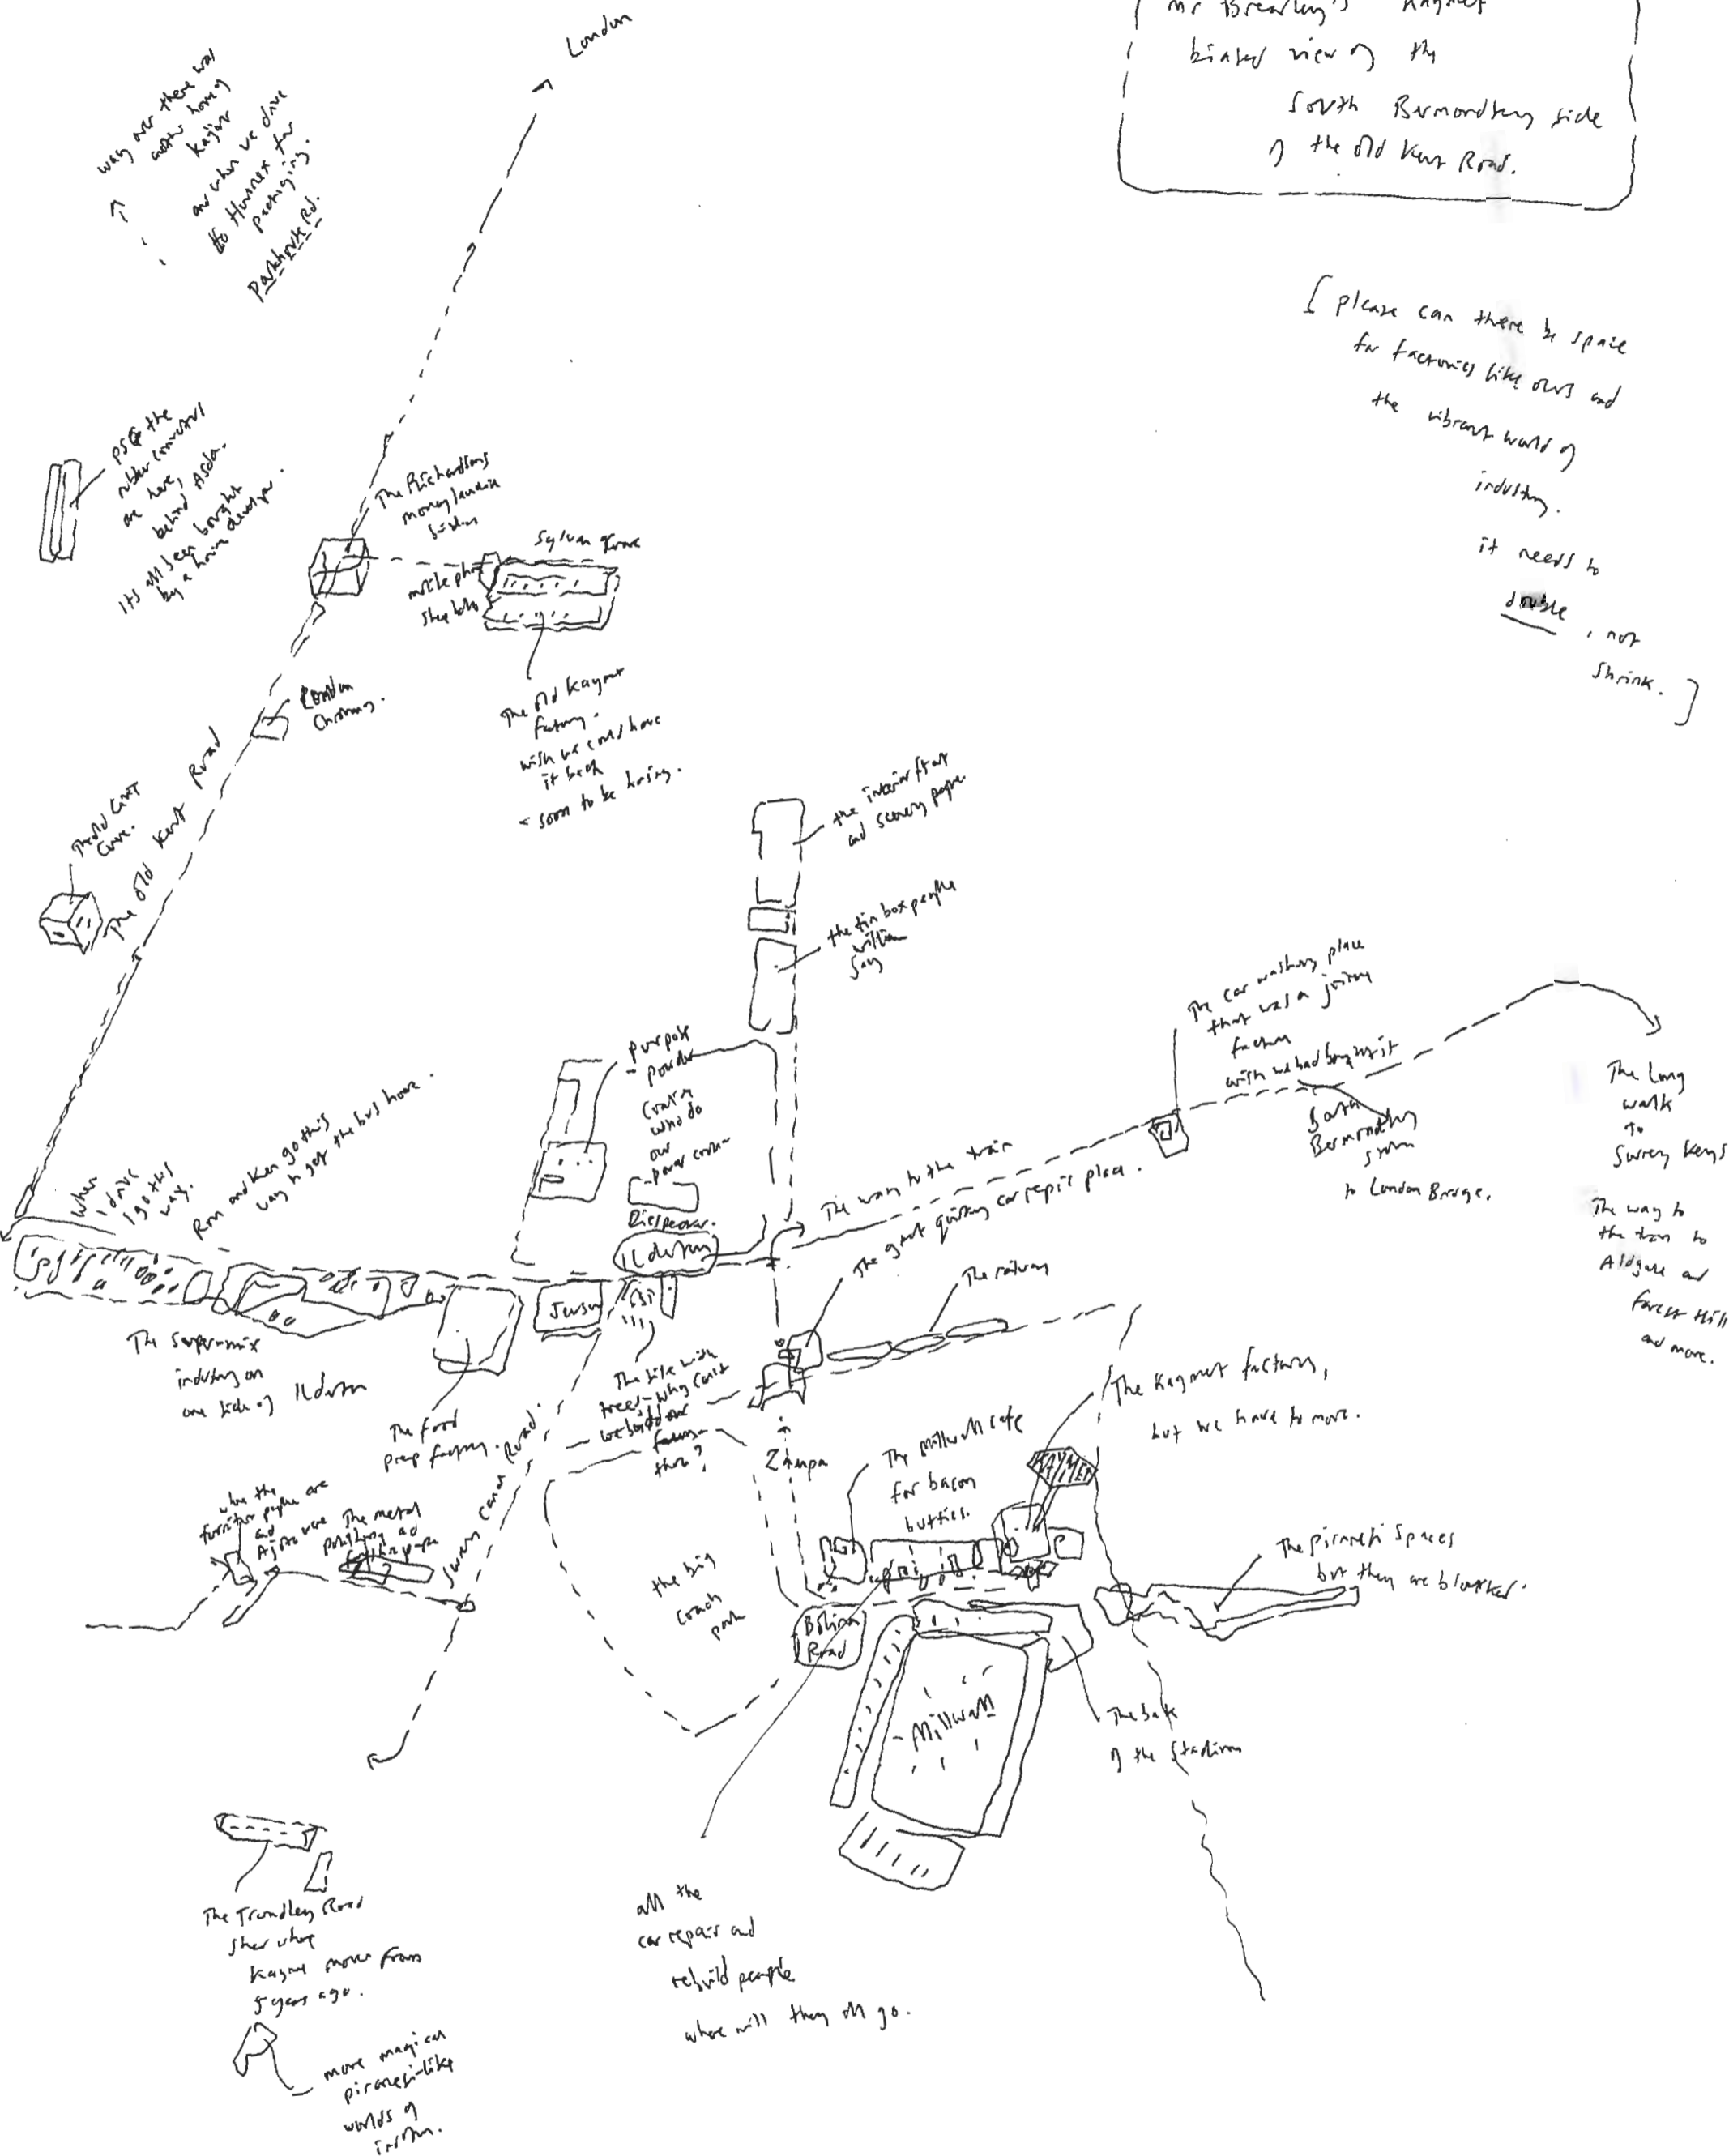 London
Mr Brearley's Kaymet
biased view of the
South Bermondsey side
of the Old Kent Road.
way over there was
another home of
Kaymet
and when we drive
to Hunnex for
packaging.
Parkhouse Rd.
[please can there be space
for factories like ours and
the vibrant world of
industry.
it needs to
double, not
shrink.]
the
rubber
are here,
behind Asda.
It's all been bought
by a home developer.
The Richardsons
money
Sylvan Grove
mobile phone
shop
The old Kaymet
factory.
wish we could have
it back
- soon to be housing.
London
Chroming.
The Old Kent Road
The old
the interior
and scenery people
the tin box people
William
Say
Purpose
powder
coating
who do
our
powder
Diespeker.
Ilderton
The car washing place
that was a joinery
factory
wish we had bought it
South
Bermondsey
to London Bridge.
The long
walk
to
Surrey Keys
The way to
the train to
Aldgate and
Forest Hill
and more.
when
I drive
I go this
way.
Ron and Ken go this
way to get the bus home.
The way to the train
The great quirky car repair place.
The railway
Jewson
The super-mix
industry on
one side of Ilderton
The food
prep factory.
The site with
trees - why can't
we build our
factory
there?
Zampa
The Millwall cafe
for bacon
butties.
The Kaymet factory,
but we have to move.
KAYMET
where the
furniture people are
and
were
The metal
polishing and
Surrey Canal Road.
the big
coach
park
Bolina
Road
Millwall
The back
of the stadium
The piranesi spaces
but they are blocked.
The Trundley Road
where
Kaymet moved from
5 years ago.
all the
car repair and
rebuild people
where will they all go.
more magical
piranesi-like
worlds of